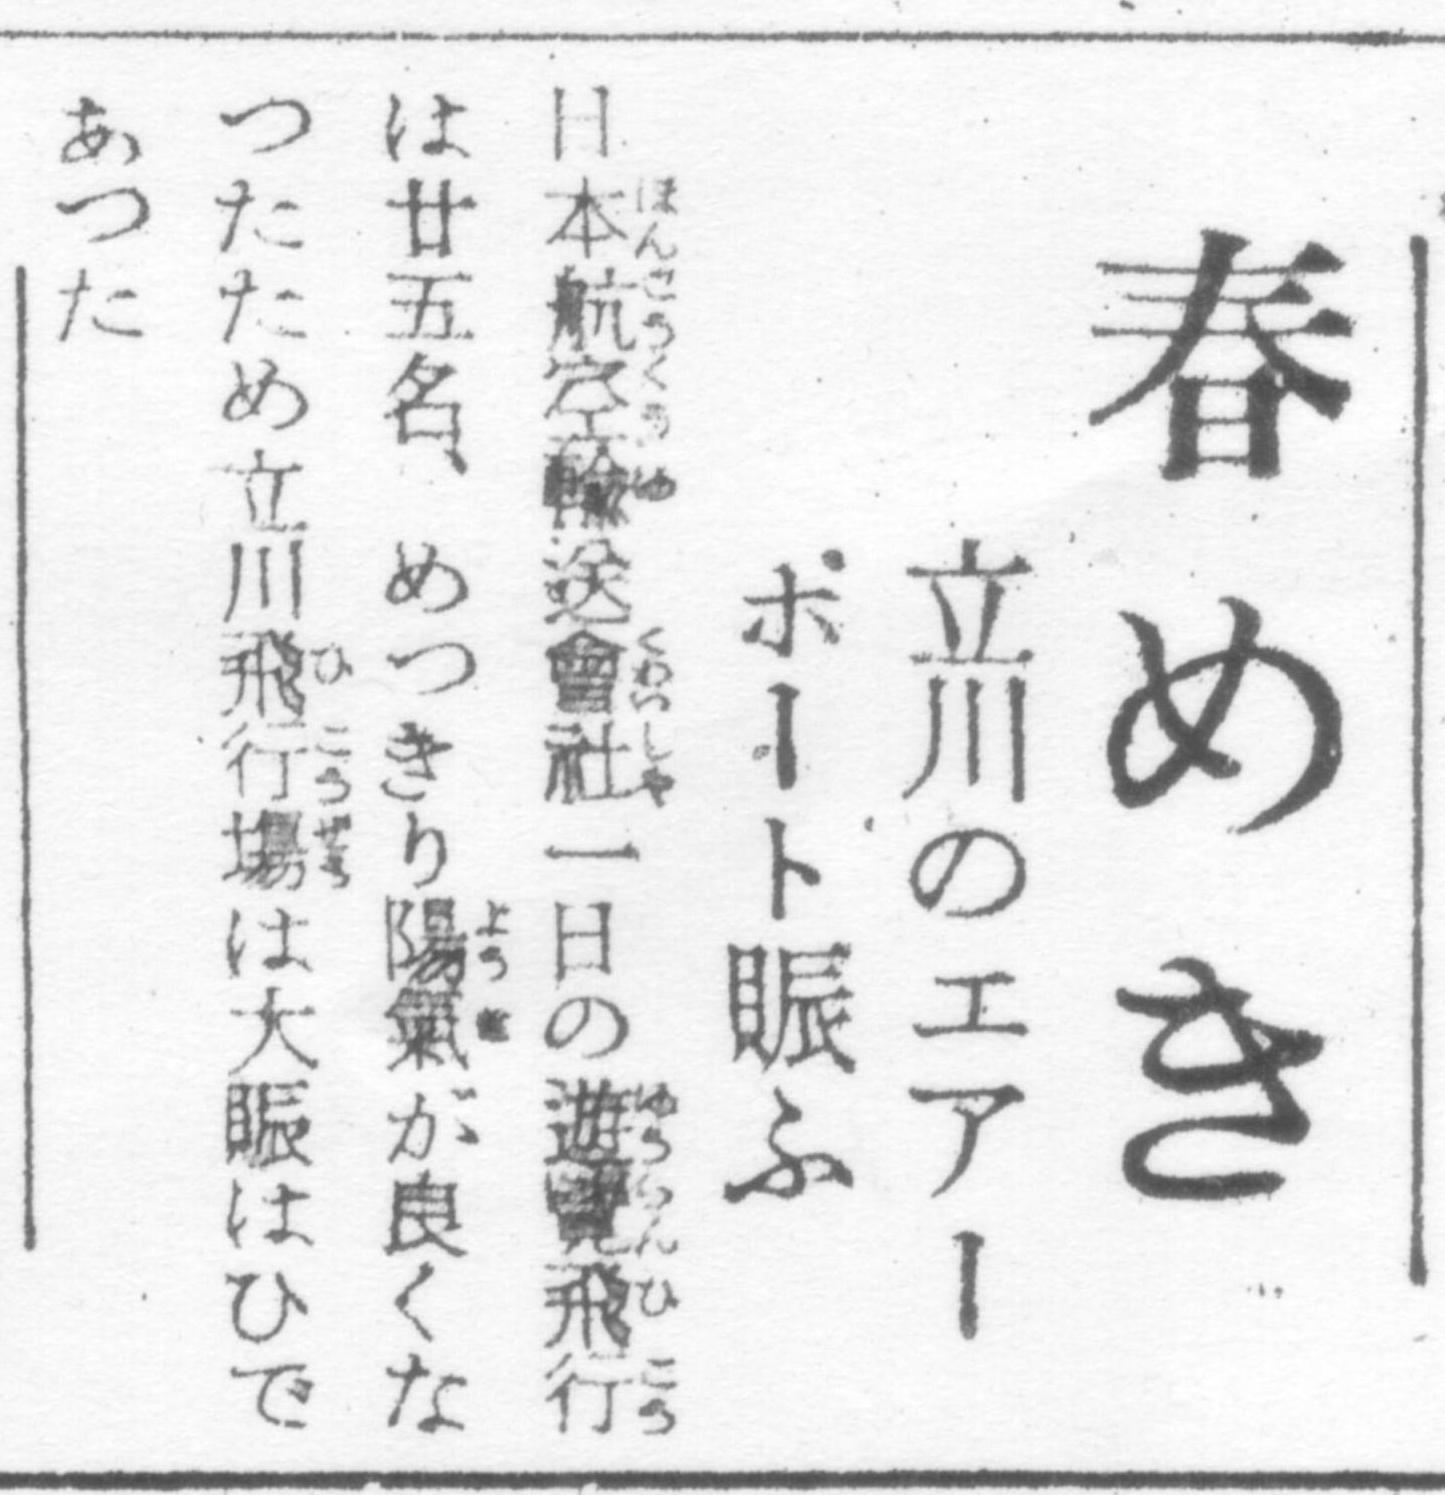 春めき
立川のエアー
ポート賑ふ
日本航空輸送會社一日の遊覽飛行
は廿五名、めつきり陽氣が良くな
つたため立川飛行場は大賑はひで
あつた